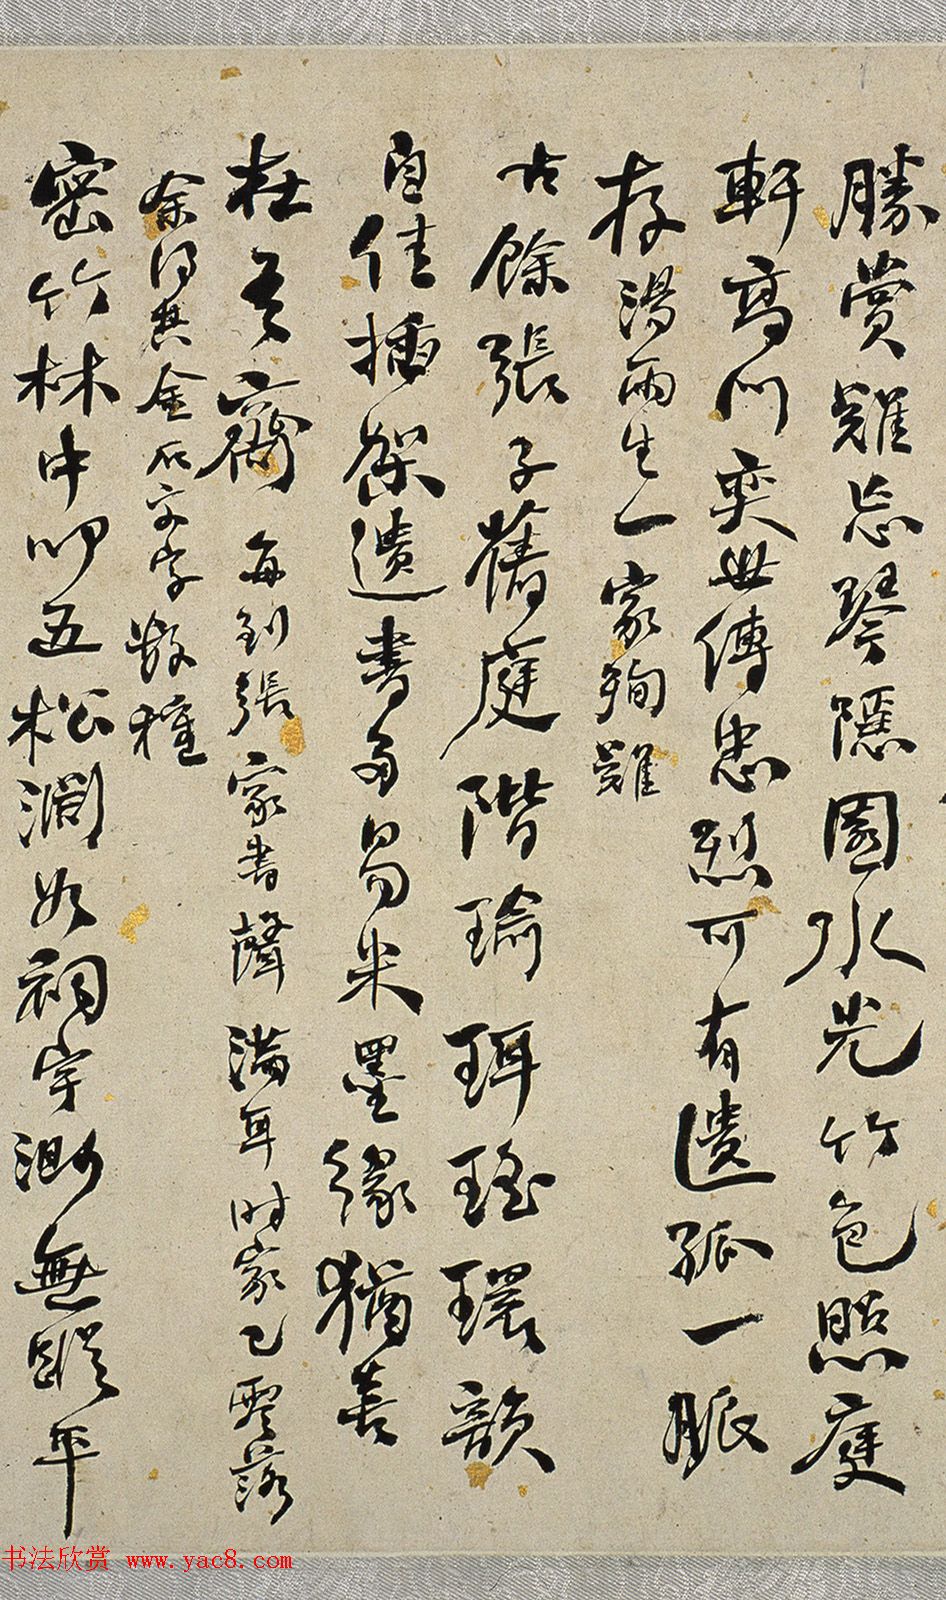 勝賞難忘琴隱園水光竹色照廋
軒高門奕世傳忠烈可有遺孤一脈
存湯雨生一家殉難
古餘張子舊庭階瑜珥瑤環韻
自佳插架遺書多易米墨緣猶善
在吾齋每到張家書聲滿耳時家已零落
余得其金石文字數種
密竹林中叩五松澗如祠宇渺無蹤平
书法欣赏 www.yac8.com